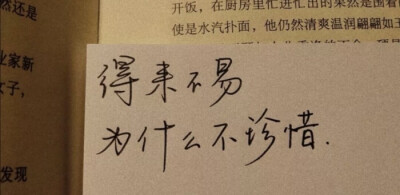 然还是
开饭，在厨房里忙进忙出的果然是围着
使是水汽扑面，他仍然清爽温润翩翩如玉
业家新
女子，
发现
得来不易
为什么不珍惜.